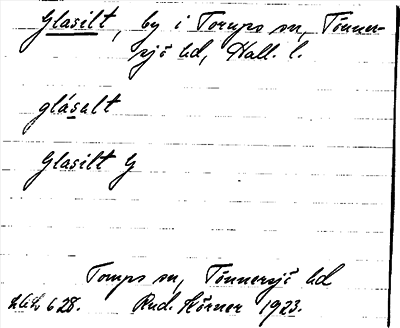 Glasilt, by i Torups sn, Tönner-
sjö hd, Hall. l.
glásalt
Glasilt G
Torups sn, Tönnersjö hd
628. Rud. Hörner 1923.